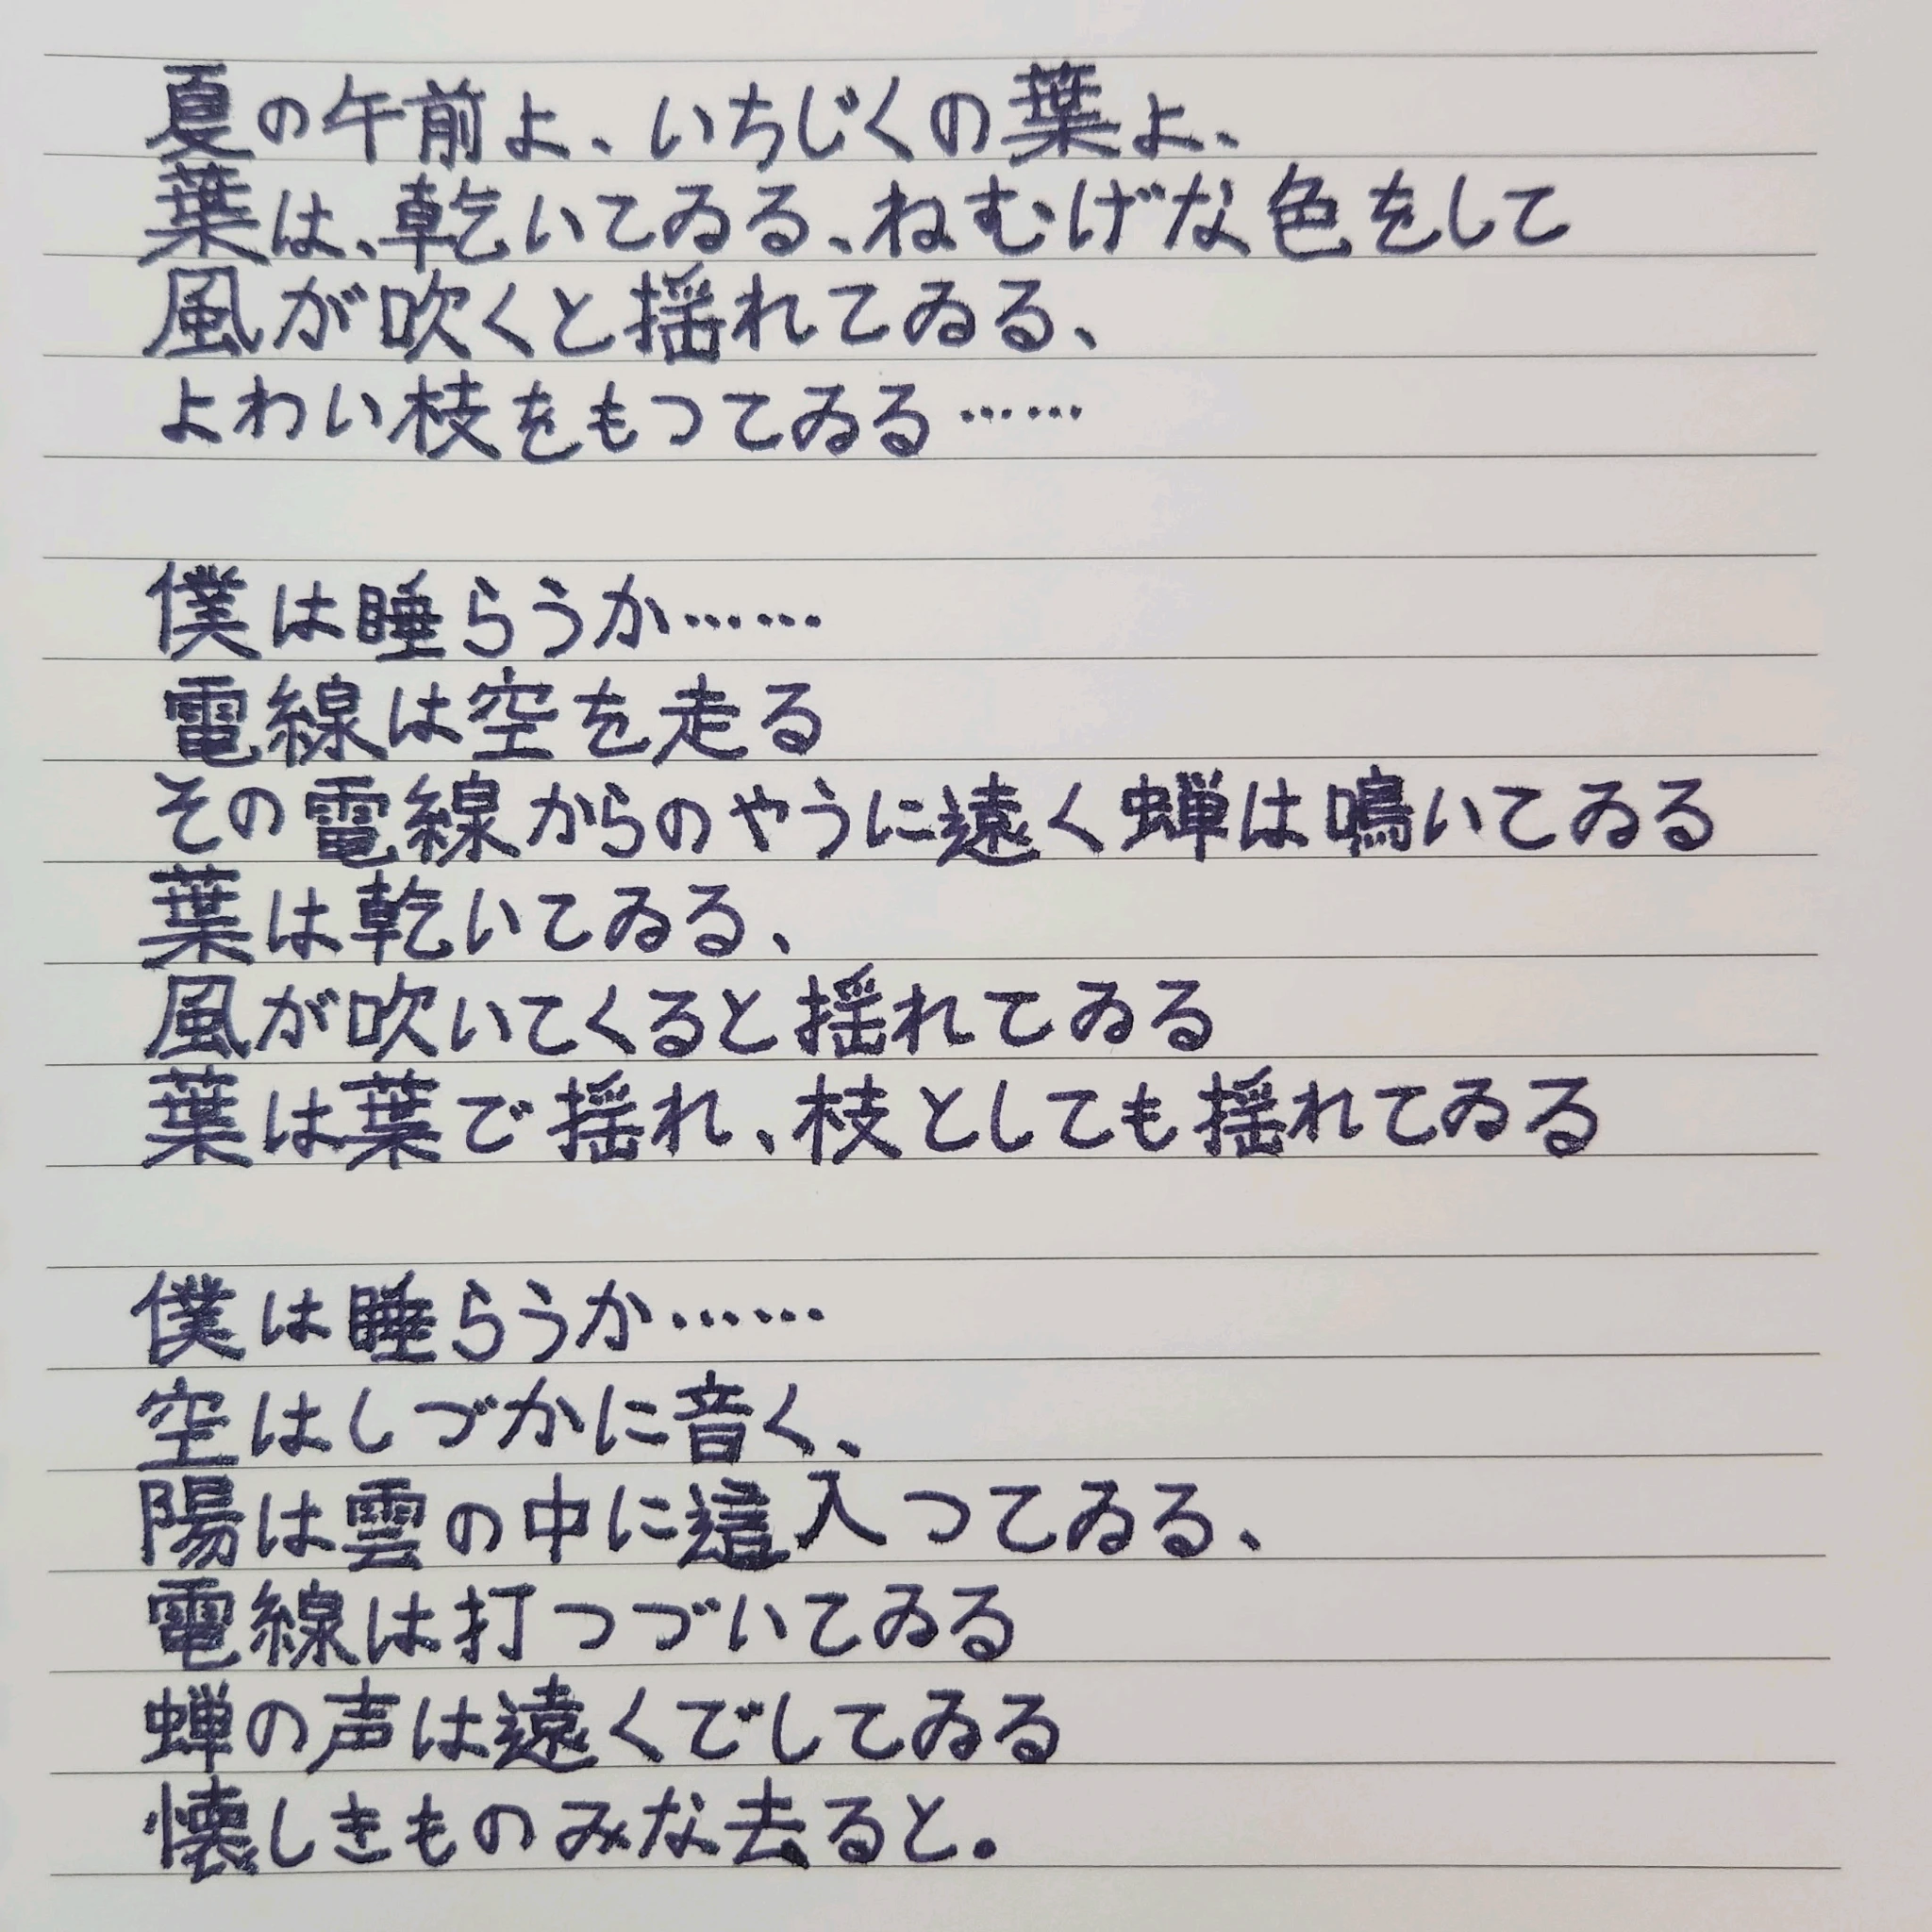 夏の午前よ、いちじくの葉よ、
葉は、乾いてゐる、ねむげな色をして
風が吹くと揺れてゐる、
よわい枝をもつてゐる……
僕は睡らうか……
電線は空を走る
その電線からのやうに遠く蝉は鳴いてゐる
葉は乾いてゐる、
風が吹いてくると揺れてゐる
葉は葉で揺れ、枝としても揺れてゐる
僕は睡らうか……
空はしづかに音く、
陽は雲の中に這入つてゐる、
電線は打つづいてゐる
蝉の声は遠くでしてゐる
懐しきものみな去ると。